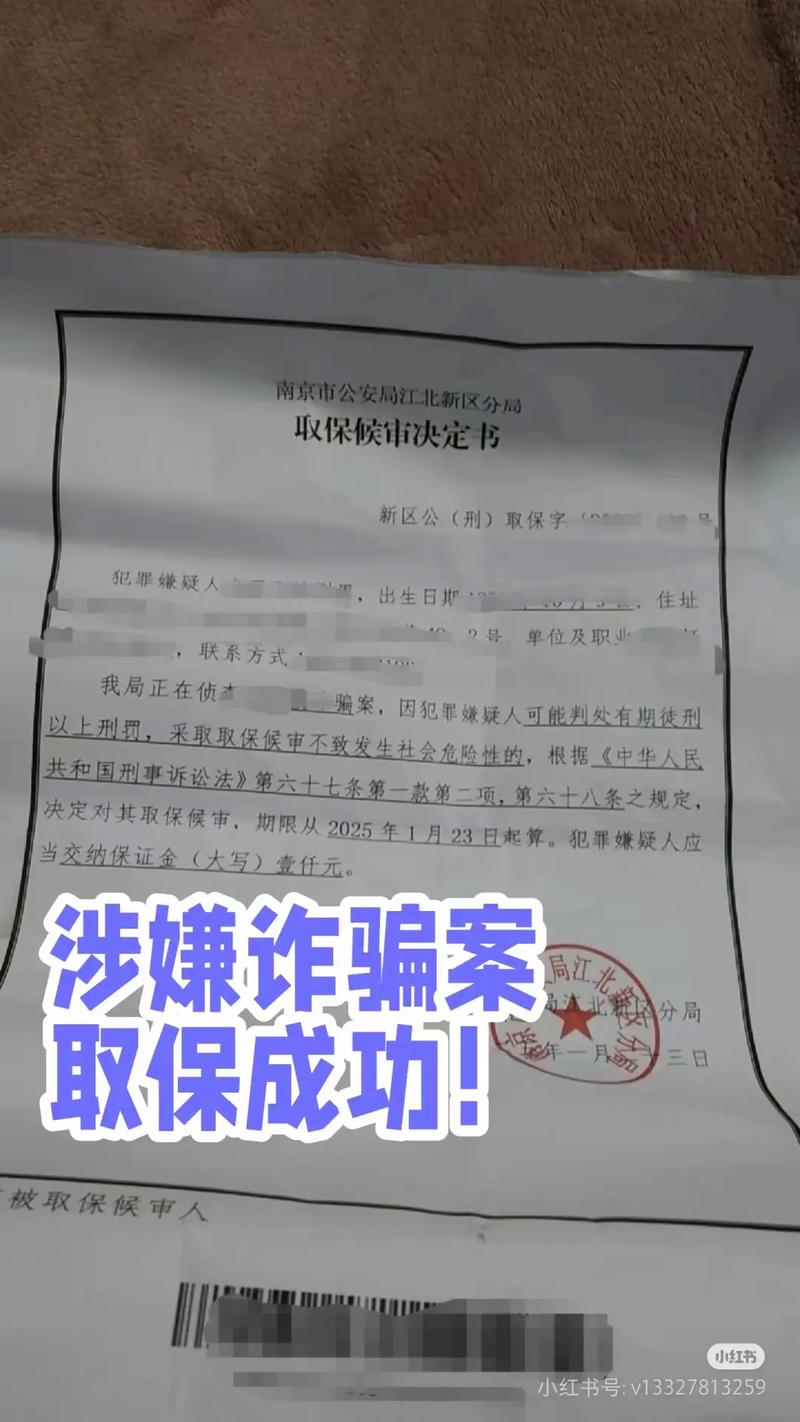 南京市公安局江北新区分局
取保候审决定书
新区公（刑）取保字
犯罪嫌疑人 ，出生日期 ，住址
号 单位及职业
，联系方式
我局正在侦 骗案，因犯罪嫌疑人可能判处有期徒刑
以上刑罚，采取取保候审不致发生社会危险性的，根据《中华人民
共和国刑事诉讼法》第六十七条第一款第二项，第六十八条之规定，
决定对其取保候审，期限从2025年1月23日起算。犯罪嫌疑人应
当交纳保证金（大写）壹仟元。
涉嫌诈骗案
取保成功！
局江北新区分局
年一月 十三日
被取保候审人
小红书
小红书号: v13327813259